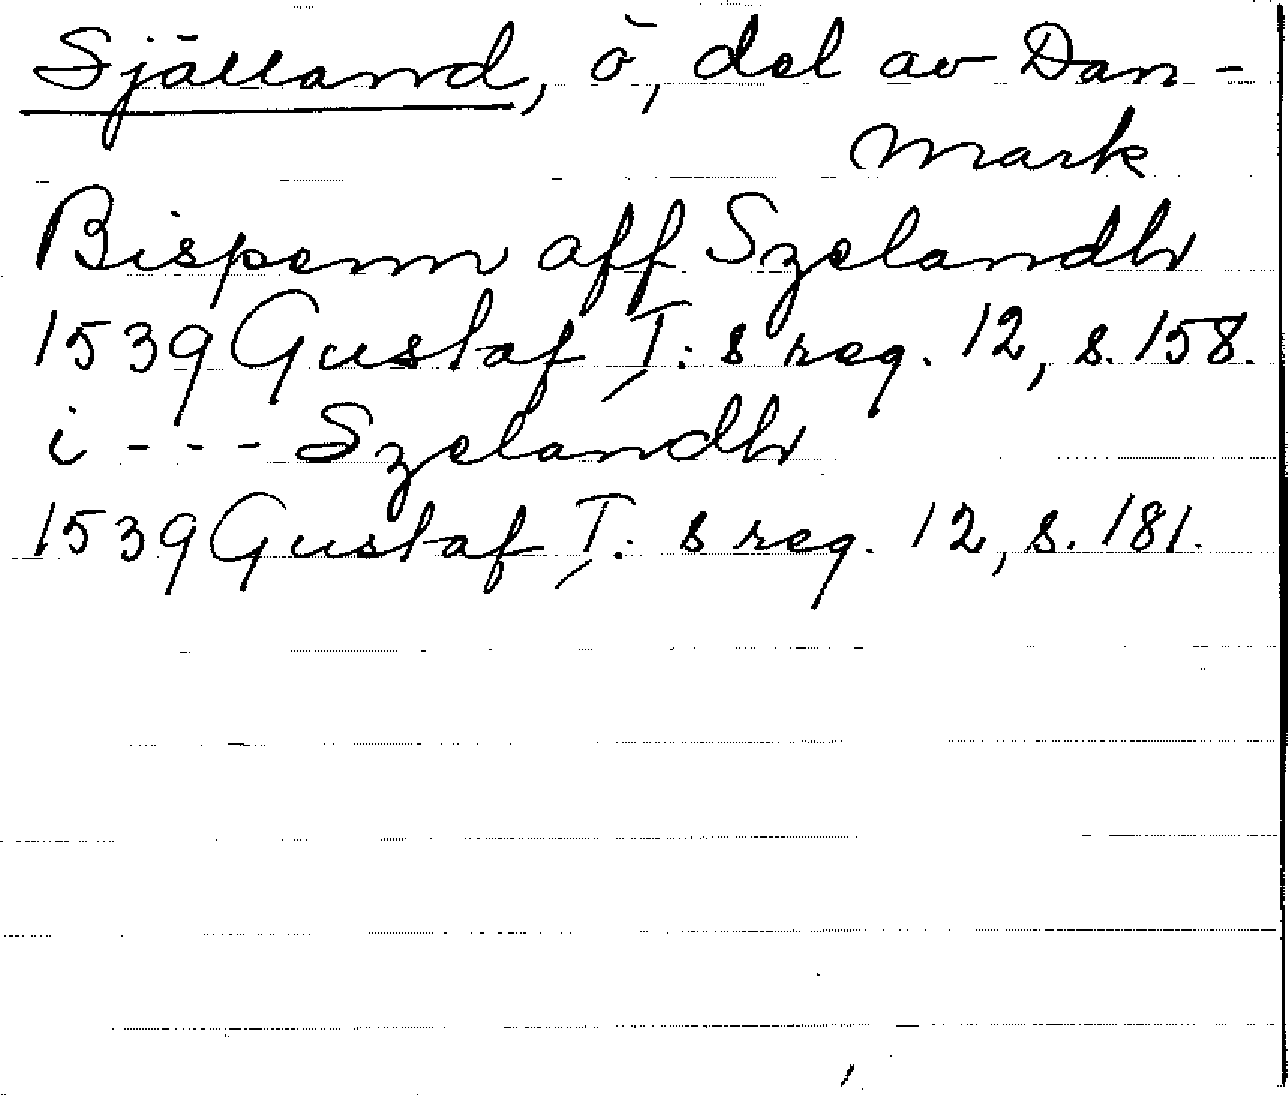 Själland, ö, del av Dan-
mark
Bispenn aff Szelandh
1539 Gustaf I:s reg. 12, s. 158.
i - - - Szelandh
1539 Gustaf I:s reg. 12, s. 181.